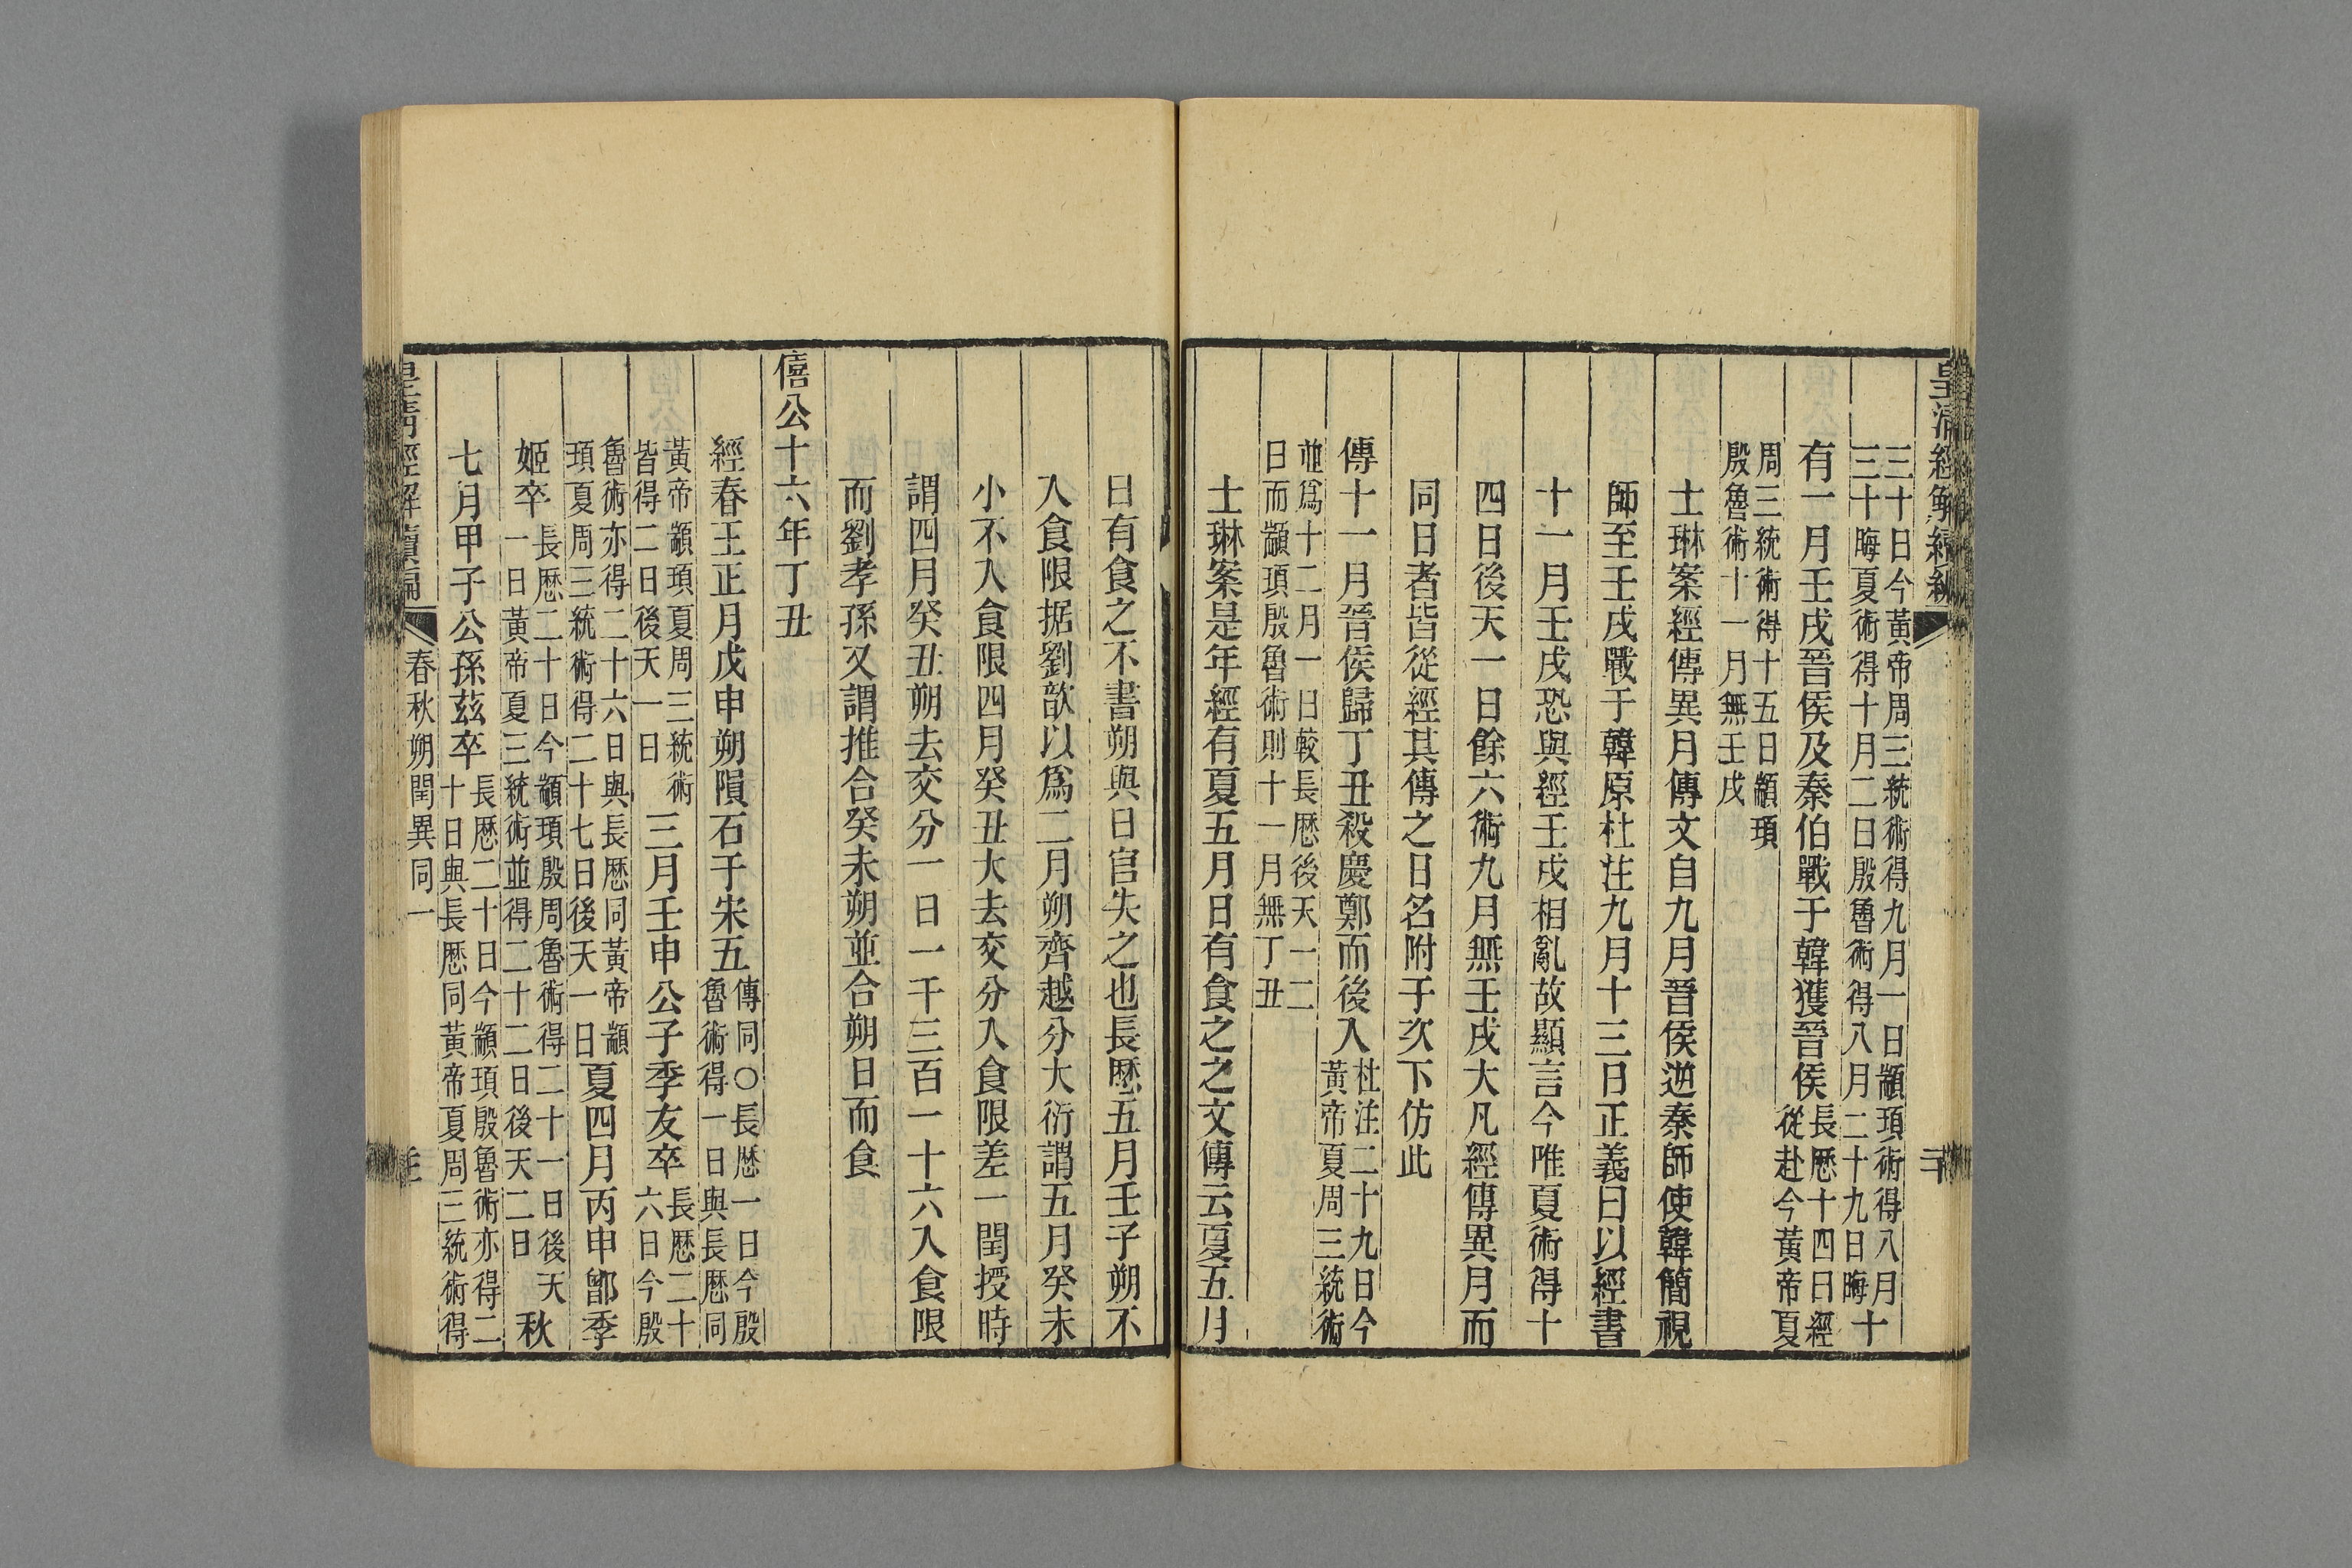 皇清經解續編
三十日今黃帝周三統術得九月一日顓頊術得八月
三十晦夏術得十月二日殷魯術得八月二十九日晦十
有一月壬戌晉侯及秦伯戰于韓獲晉侯長歷十四日經
從赴今黃帝夏
周三統術得十五日顓頊
殷魯術十一月無壬戌
士琳案經傳異月傳文自九月晉侯逆秦師使韓簡視
師至壬戌戰于韓原杜注九月十三日正義曰以經書
十一月壬戌恐與經壬戌相亂故顯言今唯夏術得十
四日後天一日餘六術九月無壬戌大凡經傳異月而
同日者皆從經其傳之日名附于次下仿此
傳十一月晉侯歸丁丑殺慶鄭而後入杜注二十九日今
黃帝夏周三統術
並為十二月一日較長歷後天一二
日而顓頊殷魯術則十一月無丁丑
士琳案是年經有夏五月日有食之之文傳云夏五月
日有食之不書朔與日官失之也長歷五月壬子朔不
入食限据劉歆以為二月朔齊越分大衍謂五月癸未
小不入食限四月癸丑大去交分入食限差一閏授時
謂四月癸丑朔去交分一日一千三百一十六入食限
而劉孝孫又謂推合癸未朔並合朔日而食
僖公十六年丁丑
經春王正月戊申朔隕石于宋五傳同○長歷一日今殷
魯術得一日與長歷同
黃帝顓頊夏周三統術
皆得二日後天一日
三月壬申公子季友卒長歷二十
六日今殷
魯術亦得二十六日與長歷同黃帝顓
頊夏周三統術得二十七日後天一日
夏四月丙申鄫季
姬卒長歷二十日今顓頊殷周魯術得二十一日後天
一日黃帝夏三統術並得二十二日後天二日
秋
七月甲子公孫茲卒長歷二十日今顓頊殷魯術亦得二
十日與長歷同黃帝夏周三統術得
皇清經解續編
春秋朔閏異同一